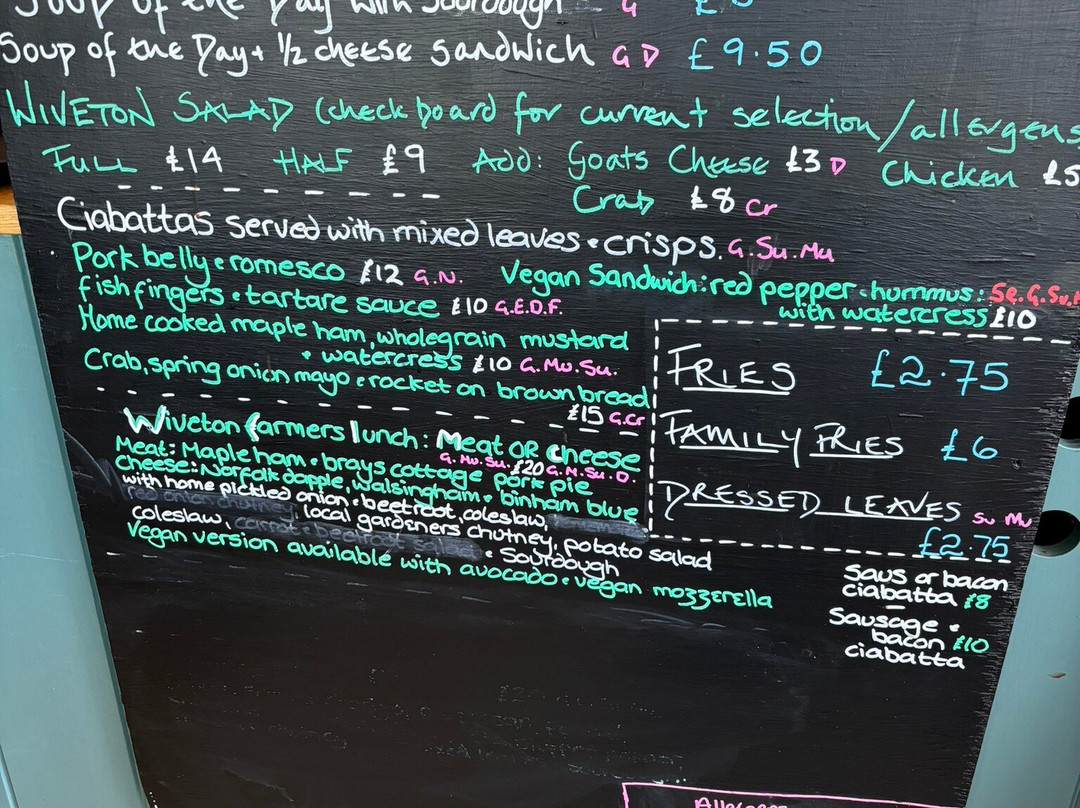 Soup of the Day with Sourdough G £
Soup of the Day + 1/2 cheese sandwich G D £9.50
WIVETON SALAD (check board for current selection/allergens
FULL £14 HALF £9 ADD: Goats Cheese £3 D Chicken £5
Crab £8 Cr
Ciabattas served with mixed leaves & crisps. G. Su. Mu
Pork belly & romesco £12 G.N.
Vegan Sandwich: red pepper & hummus: Se. G. Su.
with watercress £10
fish fingers & tartare sauce £10 G.E.D.F.
Home cooked maple ham, wholegrain mustard
& watercress £10 G. Mu. Su.
Crab, spring onion mayo & rocket on brown bread
£15 G.Cr
FRIES £2.75
FAMILY FRIES £6
DRESSED LEAVES Su Mu
£2.75
Wiveton farmers lunch: Meat OR Cheese
G. Mu. Su. £20 G. M. Su. D.
Meat: Maple ham & brays cottage pork pie
Cheese: Norfolk dapple, walsingham & binham blue
with home pickled onion & beetroot, coleslaw,
red onion chutney, local gardeners chutney, potato salad
coleslaw, & Sourdough
Vegan version available with avocado & vegan mozzerella
Saus or bacon
ciabatta £8
Sausage &
bacon £10
ciabatta